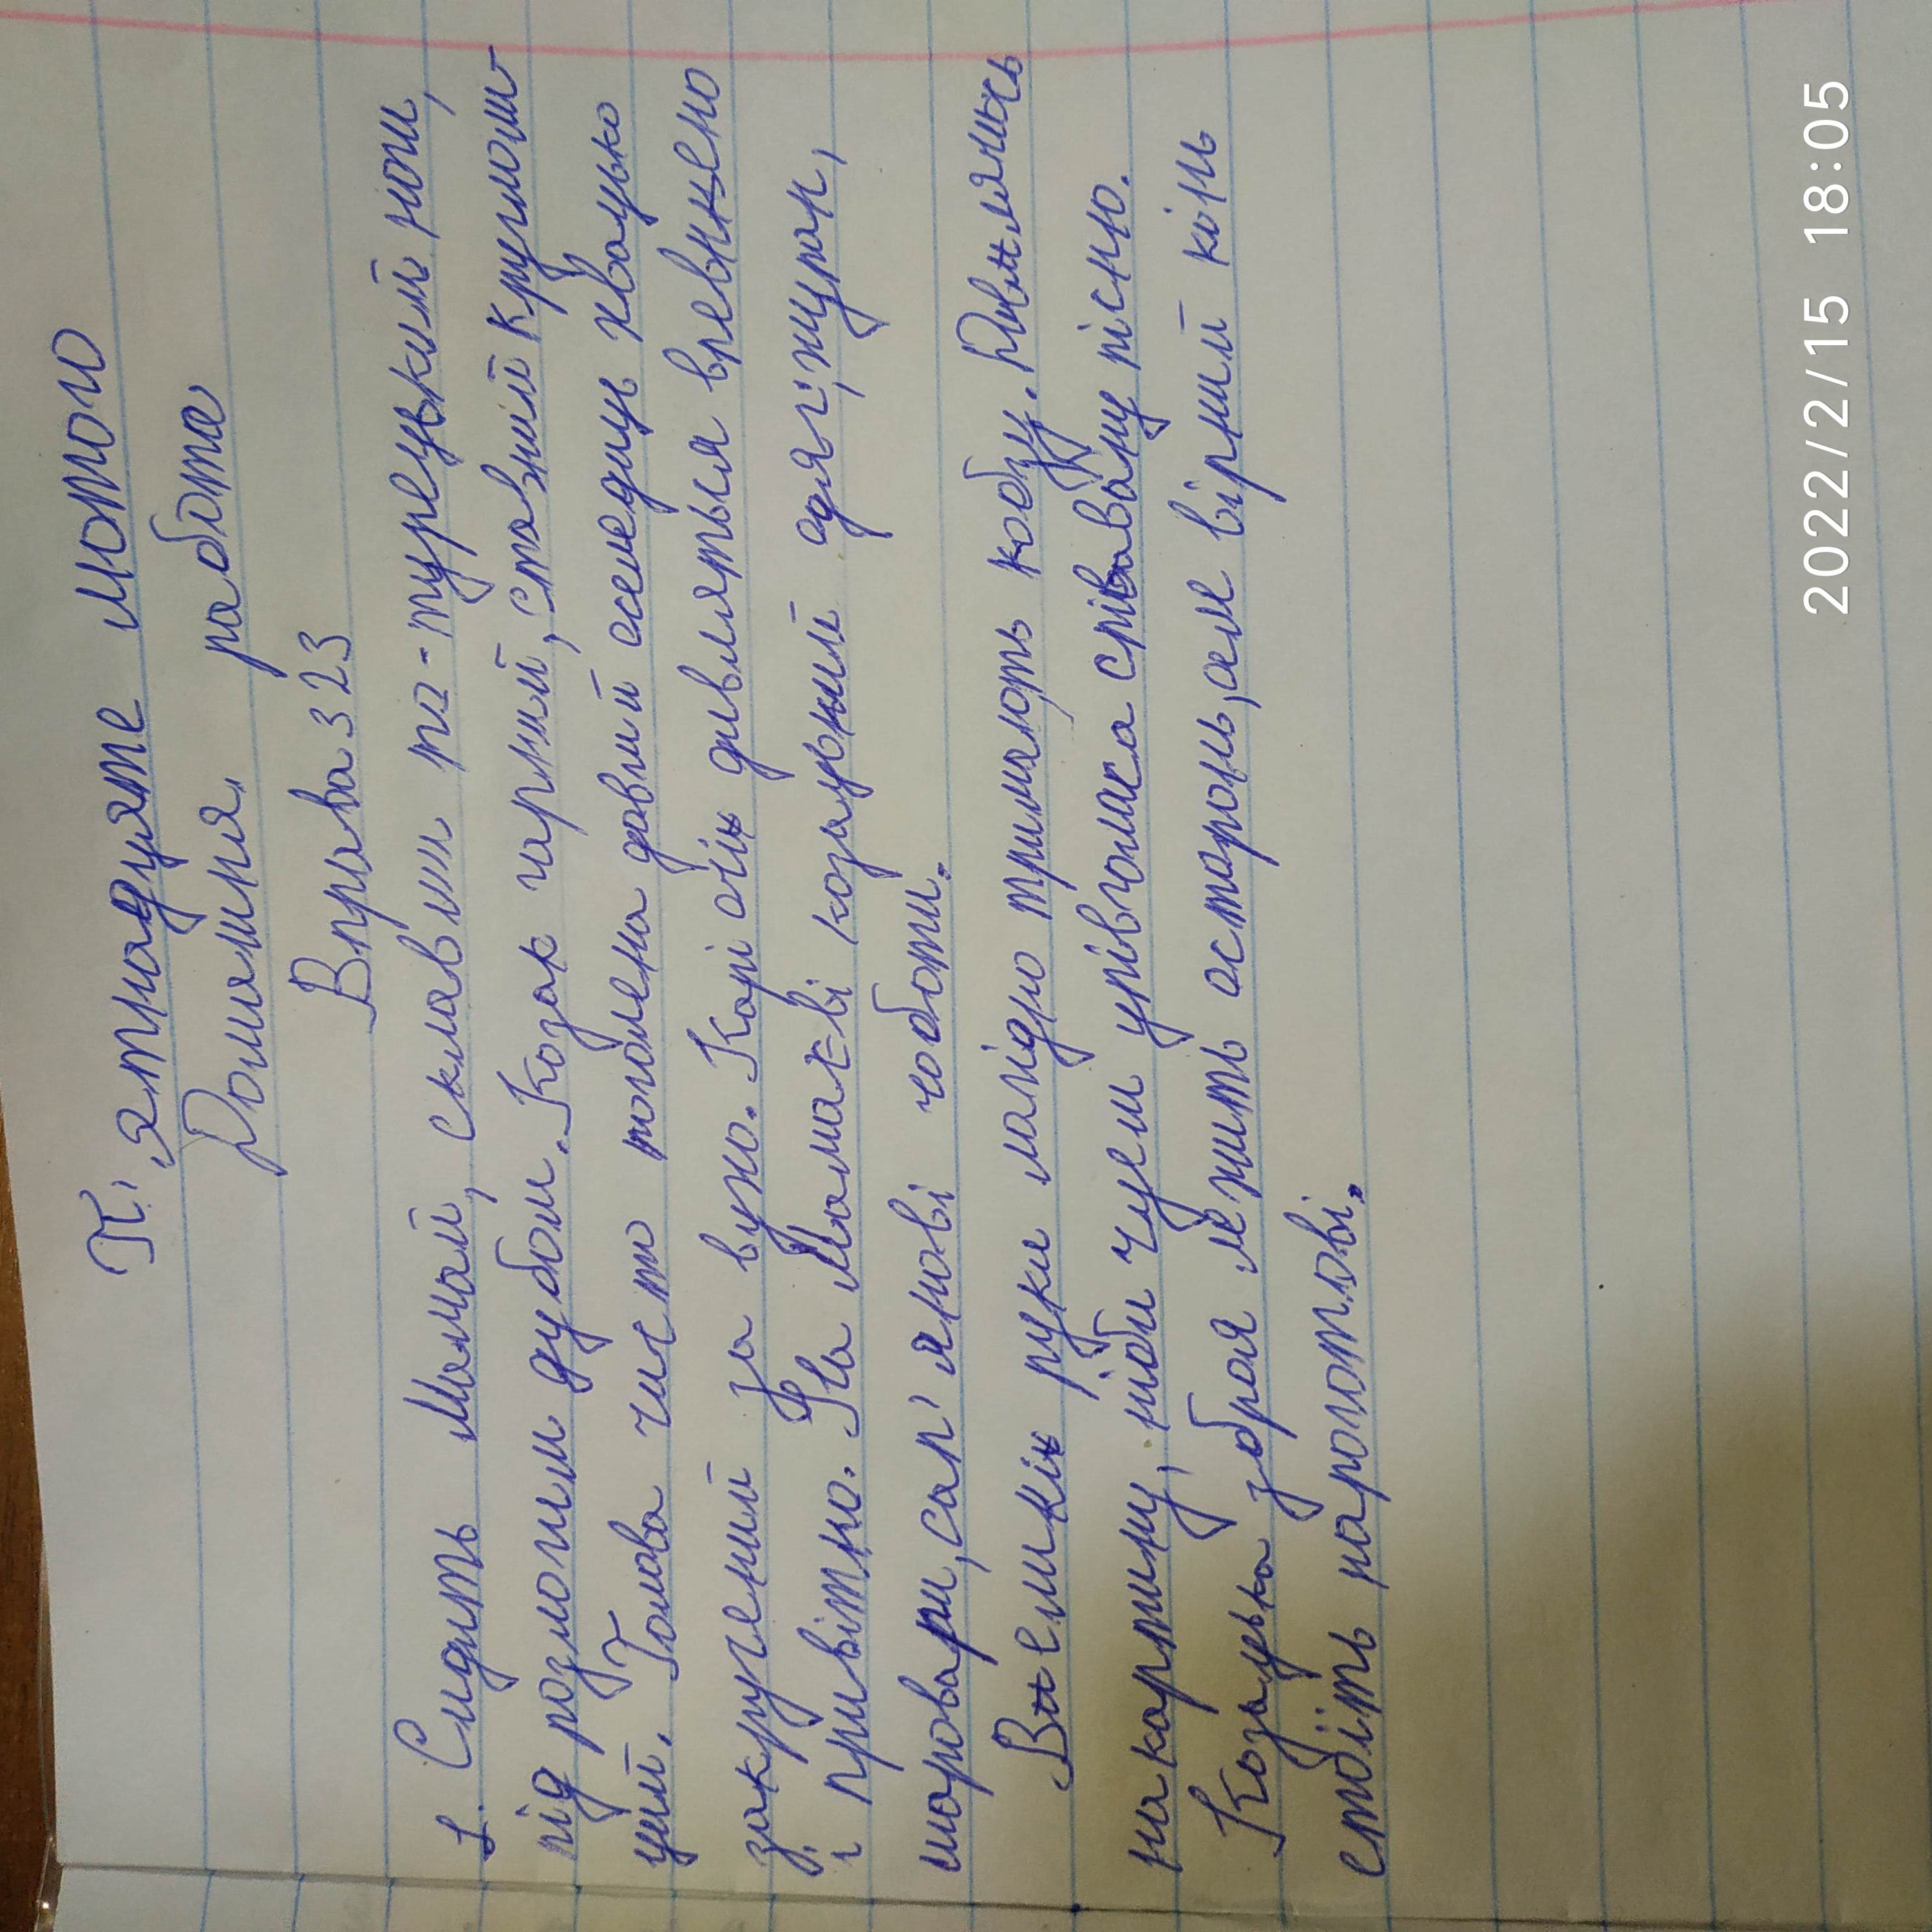 П'ятнадцяте лютого
Домашня работа
Вправа 323
1. Сидить Мамай, склавши по-турецьким ноги,
під розлогим дубом. Козак гарний, ставний круглоли-
ций. Голова чисто поголена довгий оселедць хвацько
закручений за вухо. Карі очі дивляться впевнено
і привітно. На Мамаєві козацький одяг: жупан,
шаровари, сап'янові чоботи.
Великі руки лагідно тримають кобзу. Дивлячись
на картину, ніби чуєш урівчласа співвану пісню.
Козацька зброя лежить осторонь, але вірний кінь
стоїть напоготові.
2022/2/15 18:05